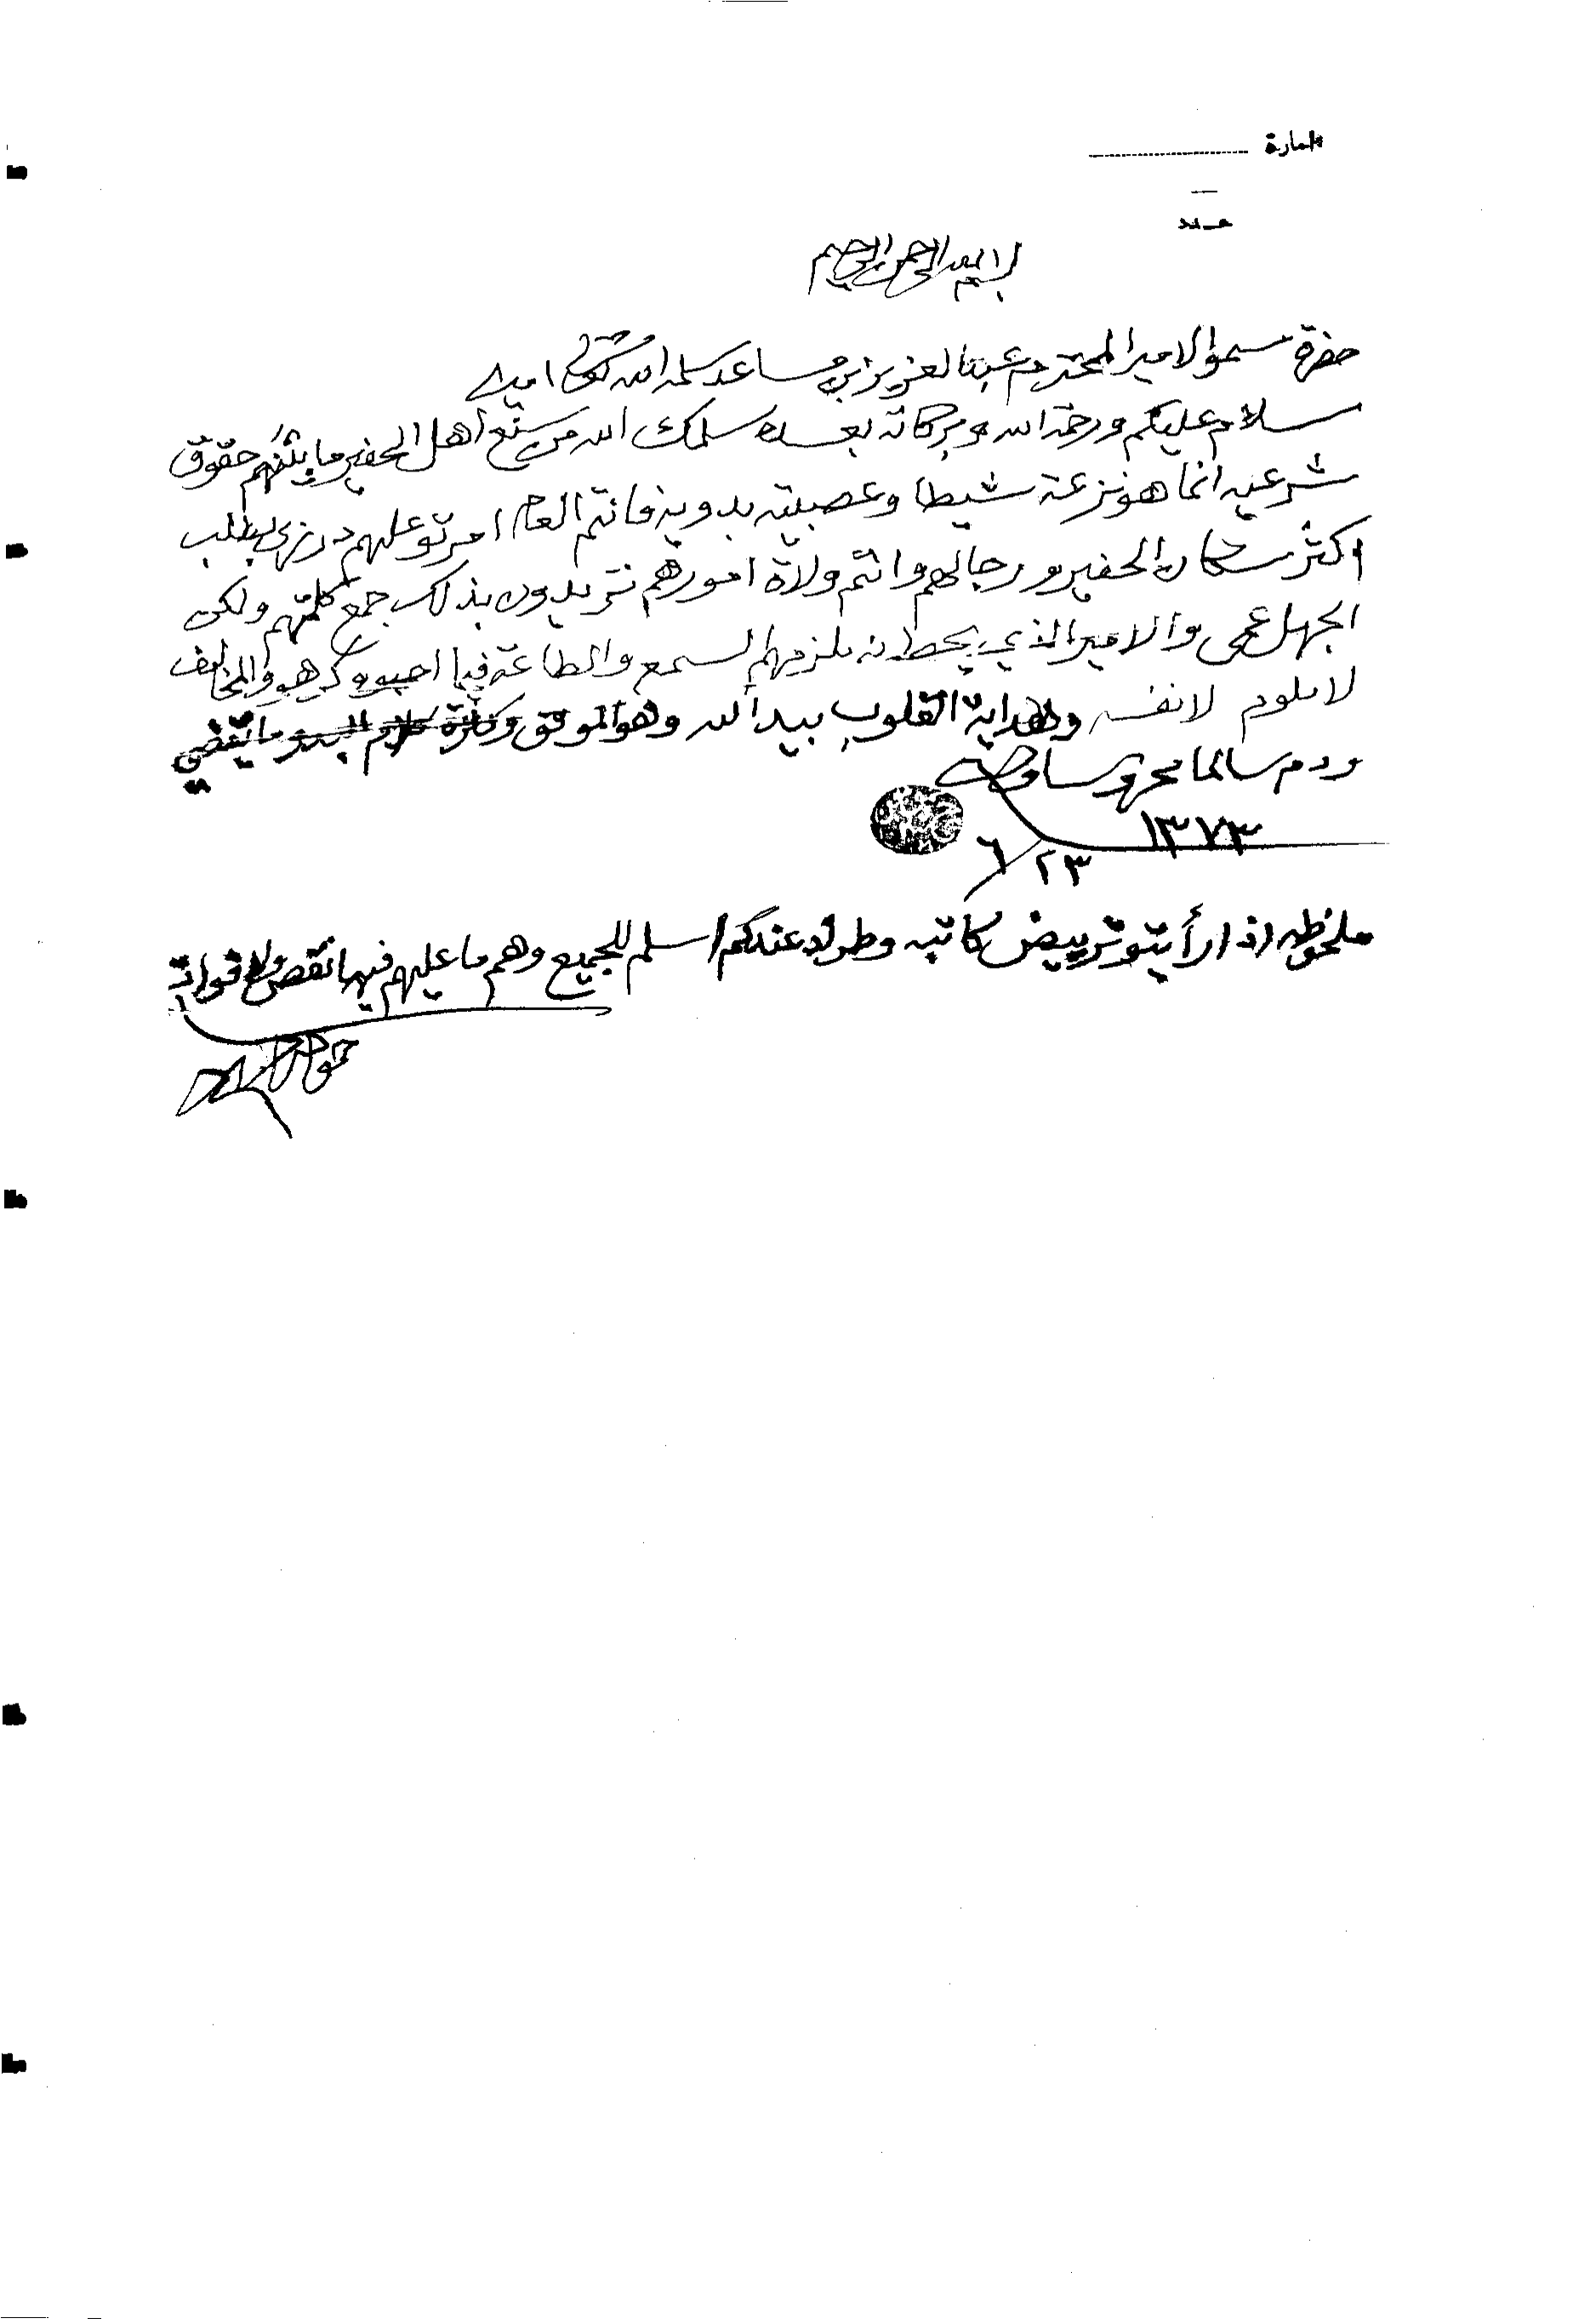 امارة
عدد
بسم الله الرحمن الرحيم
حضرة سمو الامير المحترم عبدالعزيز بن مساعد سلمه الله تعالى امين
سلام عليكم ورحمة الله وبركاته بعده سلمك الله من أهل الحفير ما بينهم حقوق
شرعيه انما هو نزعة شيطا وعصبيته بدويه فانتم العام امرتو عليهم بطلب
اكثر سكان الحفير ورجالهم وانتم ولاة امورهم تريدون بذلك جمع كلمتهم ولكن
الجهل عمى والامير الذي يحطونه يلزمهم السمع والطاعة فيما احبوو كرهو والمخالف
لا يلوم لا نفسه وهداية القلوب بيد الله وهو الموفق وكثرة كلام البدو ما ينقضي
ودم سالما محروسا والسلام
١٣٧٣
٢٣ / ٦
ملحوظه اذا رأيتو تربيض كاتبه وطراد عندكم اسلم للجميع وهم ما عليهم فيها نقص ولا